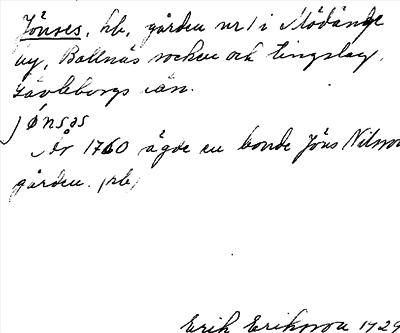 Jönses, kb, gården nr 1 i Mödänge
by, Bollnäs socken och tingslag,
Gävleborgs län.
jǿnsəs
År 1760 ägde en bonde Jöns Nilsson
gården. (kb)
Erik Eriksson 1929